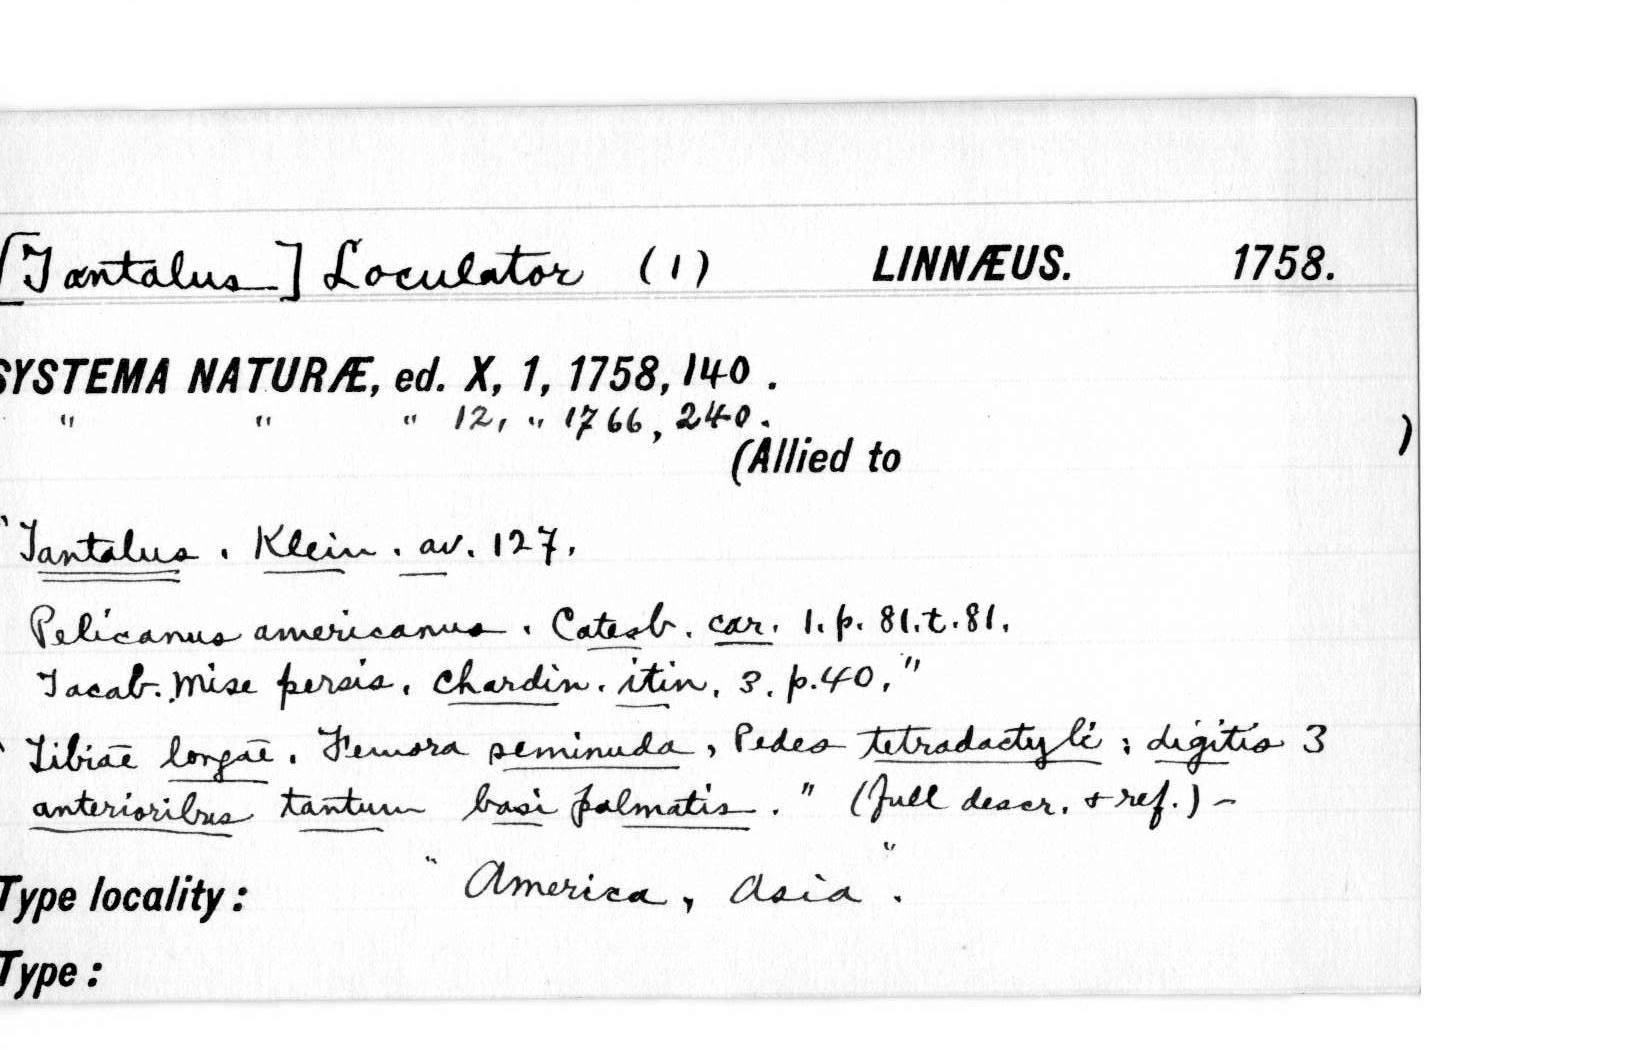 [Tantalus] Loculator (1) LINNÆUS. 1758.
SYSTEMA NATURÆ, ed. X, 1, 1758, 140.
" " " 12, " 1766, 240.
(Allied to )
"Tantalus. Klein. av. 127.
Pelicanus americanus. Catesb. car. 1. p. 81. t. 81.
Tacab. Mise persis. Chardin. itin. 3. p. 40."
"Tibiae longae. Femora seminuda, Pedes tetradactyli; digitis 3
anterioribus tantum basi palmatis." (full descr. & ref.) -
Type locality: "America, Asia".
Type: